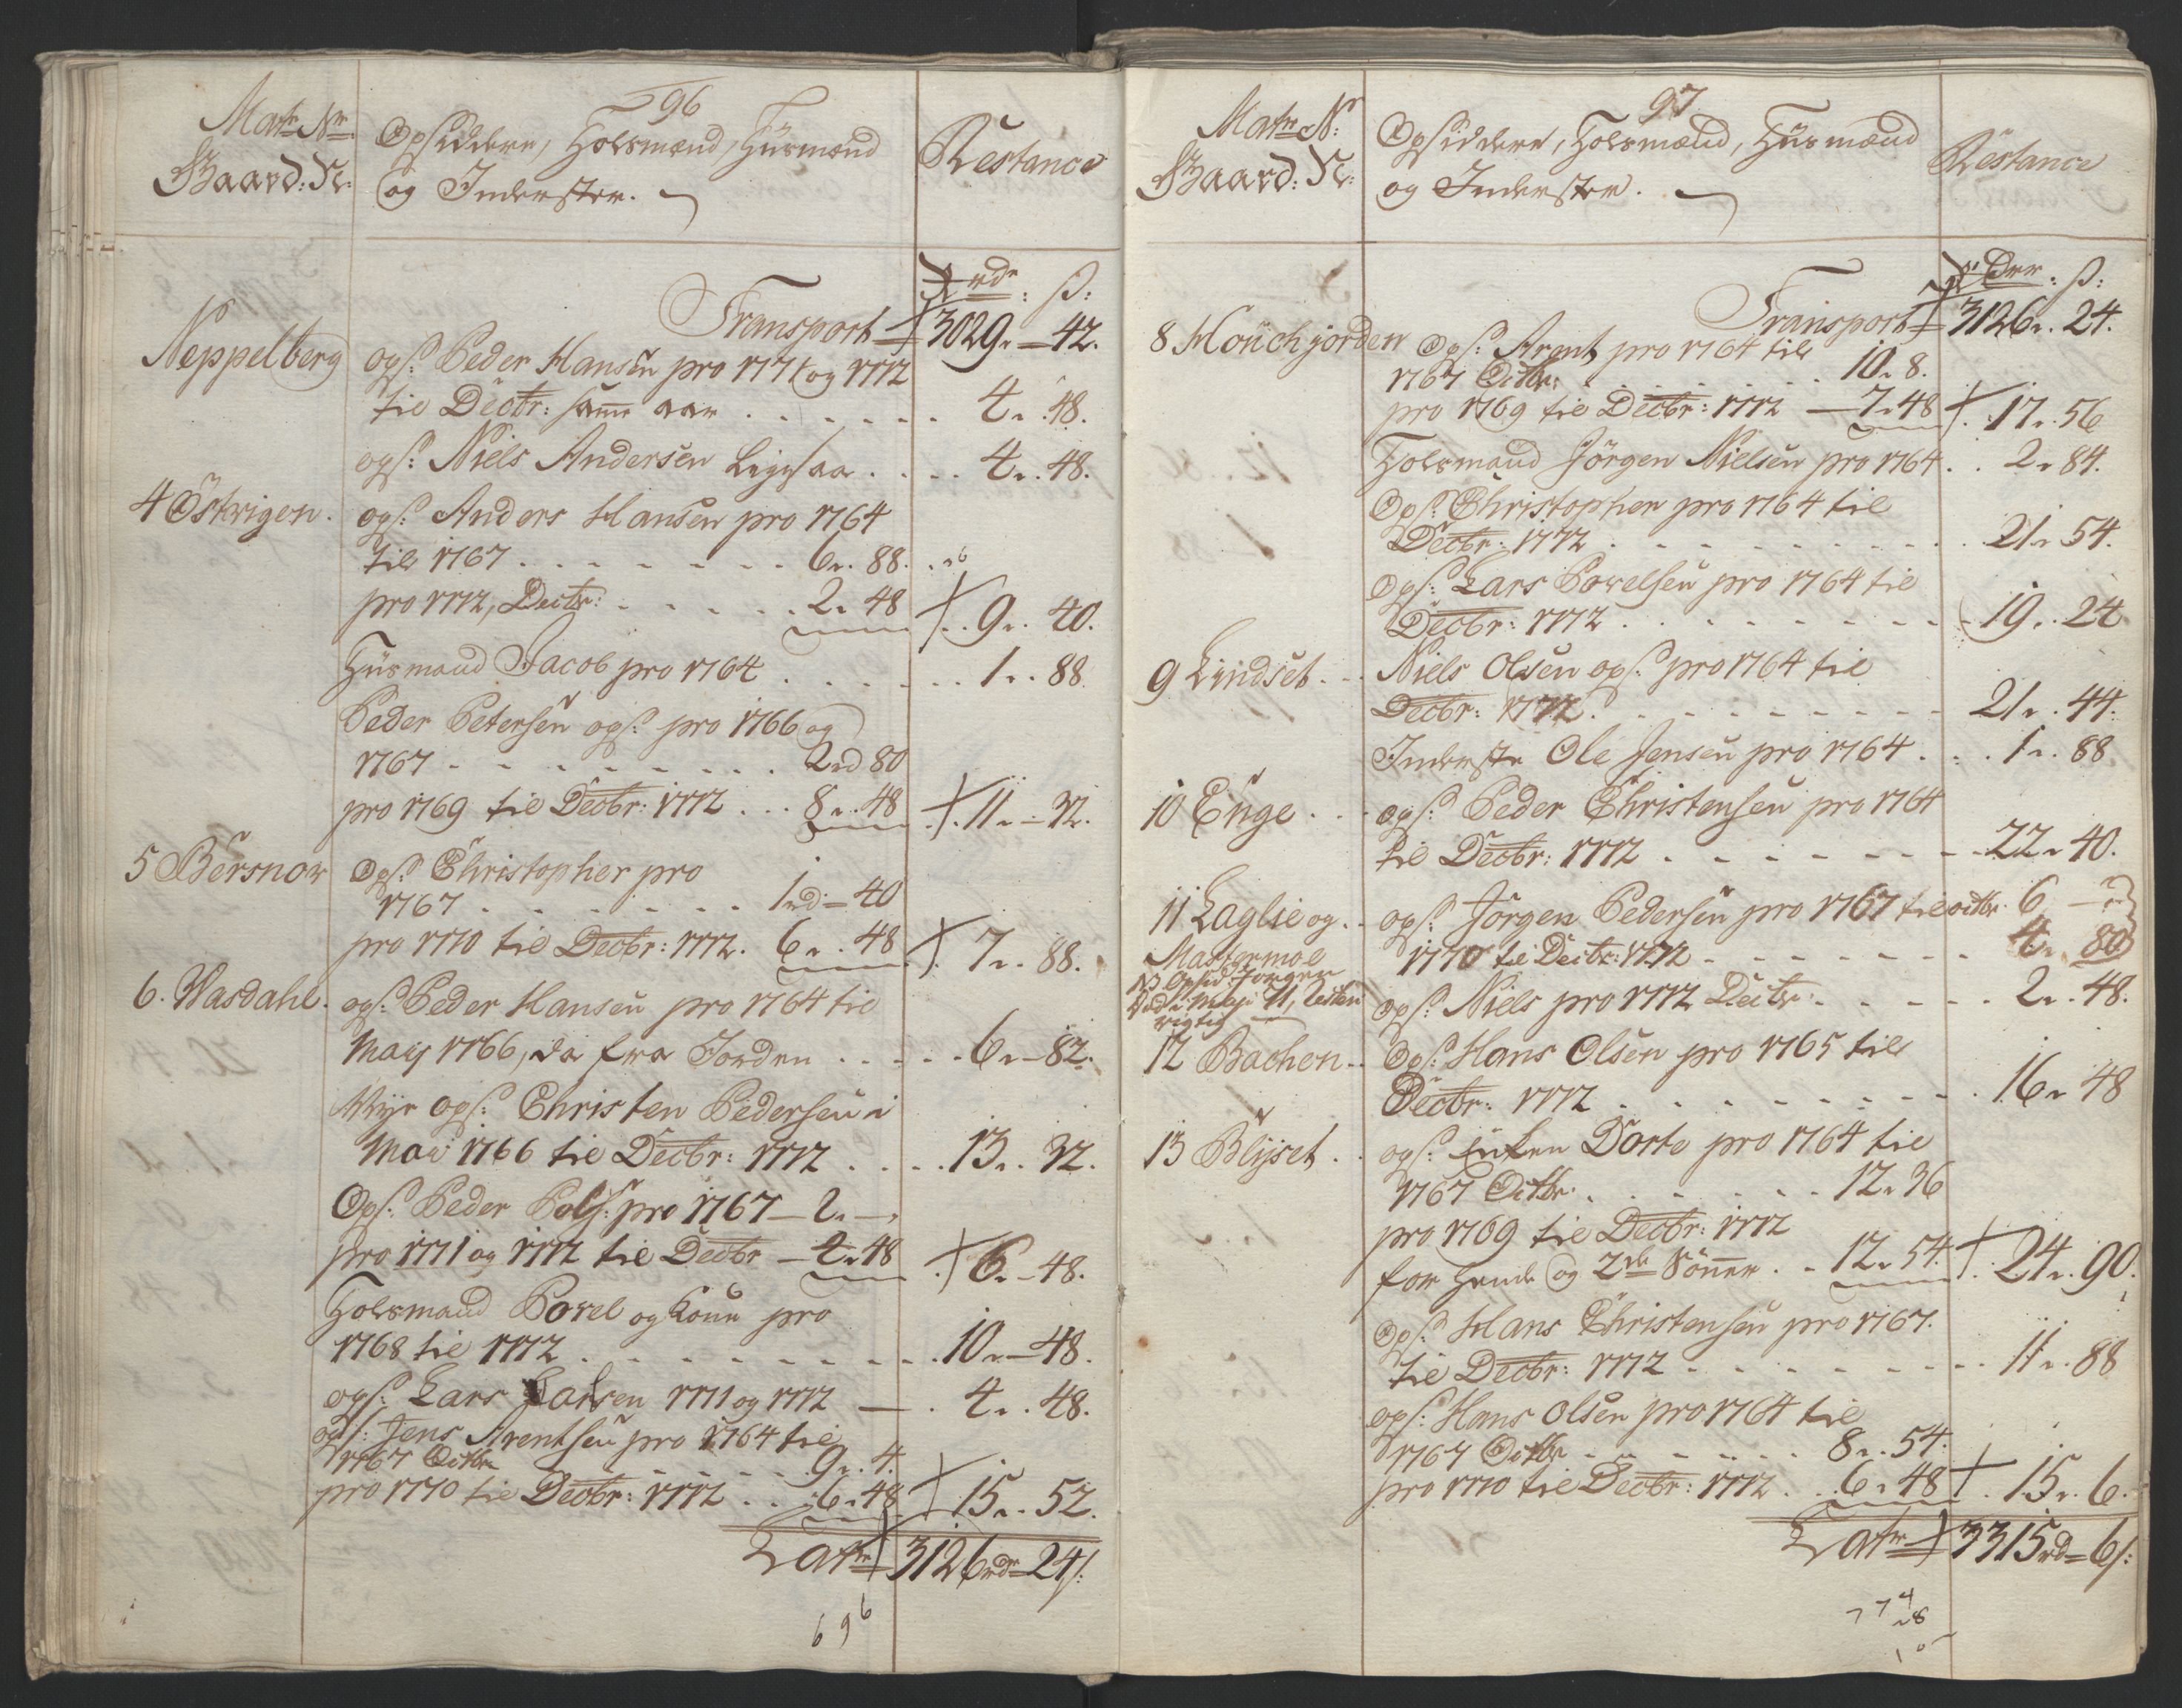 96
Matr. Nr.
Gaard: N:
Opsiddere, Holsmænd, Huusmænd
og Inderster.
Restance
rdr : s:
Transport 3029 .. 42.
Neppelberg
ops: Peder Hansen pro 1771 og 1772
til Decbr: samme aar . . . . . . 4 .. 48.
ops: Niels Andersen Ligesaa . . . . 4 .. 48.
4 Östvigen. ops: Anders Hansen pro 1764
til 1767 . . . . . . . 6 .. 88.
pro 1772, Decbr: . . . . . 2 .. 48 9 .. 40.
Huusmand Jacob pro 1764 . . . . . . 1 .. 88.
Peder Petersen ops: pro 1766 og
1767 - - - - - - - - 2rd 80
pro 1769 til Decbr: 1772 . . . 8 .. 48 11 .. 32.
5 Bersnow ops: Christopher pro
1767 . . . . . . . 1rd - 40
pro 1770 til Decbr: 1772. 6 .. 48 7 .. 88.
6. Wasdahl. ops: Peder Hansen pro 1764 til
May 1766, da fra Jorden . . . . . 6 .. 82.
Nye ops: Christen Pedersen i
Maii 1766 til Decbr: 1772 . . . . 13 .. 32.
Ops: Peder Pols: pro 1767 - 2 .. -
pro 1771 og 1772 til Decbr - 4 .. 48 6 .. 48.
Holsmand Povel og Kone pro
1768 til 1772 . . . . . . . . . 10 .. 48.
ops: Lars Larsen 1771 og 1772 — . 4 .. 48.
ops: Jens Arentsen pro 1764 til
1767 Octbr . . . . . . 9 .. 4.
pro 1770 til Decbr: 1772 . . . 6 .. 48 15 .. 52.
Latr 3126 rdr 24 s:
696
97
Matr N:
Gaard: N:
Opsiddere, Holsmænd, Huusmænd
og Inderster.
Restance
rdr : s:
Transport 3126 .. 24.
8 Mouchjorden Ops: Arent pro 1764 til
1767 Octbr: . . . . . . 10 .. 8.
pro 1769 til Decbr: 1772 — 7 .. 48 17 .. 56
Holsmand Jörgen Nielsen pro 1764 . . 2 .. 84.
Ops: Christopher pro 1764 til
Decbr: 1772 . . . . . . . . . . 21 .. 54.
Ops: Lars Povelsen pro 1764 til
Decbr: 1772 . . . . . . . . . 19 .. 24
9 Lindset . . . Niels Olsen ops: pro 1764 til
Decbr: 1772. . . . . . . . . . 21 .. 44.
Inderste Ole Jensen pro 1764 . . . 1 .. 88
10 Enge . . . ops: Peder Christensen pro 1764
til Decbr: 1772 . . . . . . . . 22 .. 40.
11 Laglie og . . ops: Jörgen Pedersen pro 1767 til octbr. 6 —
Mastermoe 1770 til Decbr: 1772 - - - - - - - 4 .. 80
NB Opsid. Jörgen
Död i May 71, Resten
rigtig
ops: Niels pro 1772 Decbr: . . . . 2 .. 48.
12 Bachen . . Ops: Hans Olsen pro 1765 til
Decbr: 1772 . . . . . . . . . 16 .. 48
13 Blijset . . ops: Enken Dorte pro 1764 til
1767 Octbr. . . . . . . . 12 .. 36
pro 1769 til Decbr: 1772
for hende og 2de Sönner . . 12 .. 54. 24 .. 90.
Ops: Hans Christensen pro 1767.
til Decbr: 1772 - - - - - - - - 11 .. 88
ops: Hans Olsen pro 1764 til
1767 Octbr - - - - - - 8 .. 54.
pro 1770 til Decbr: 1772 . . 6 .. 48 15 .. 6.
Latr 3315 rd 6 s: